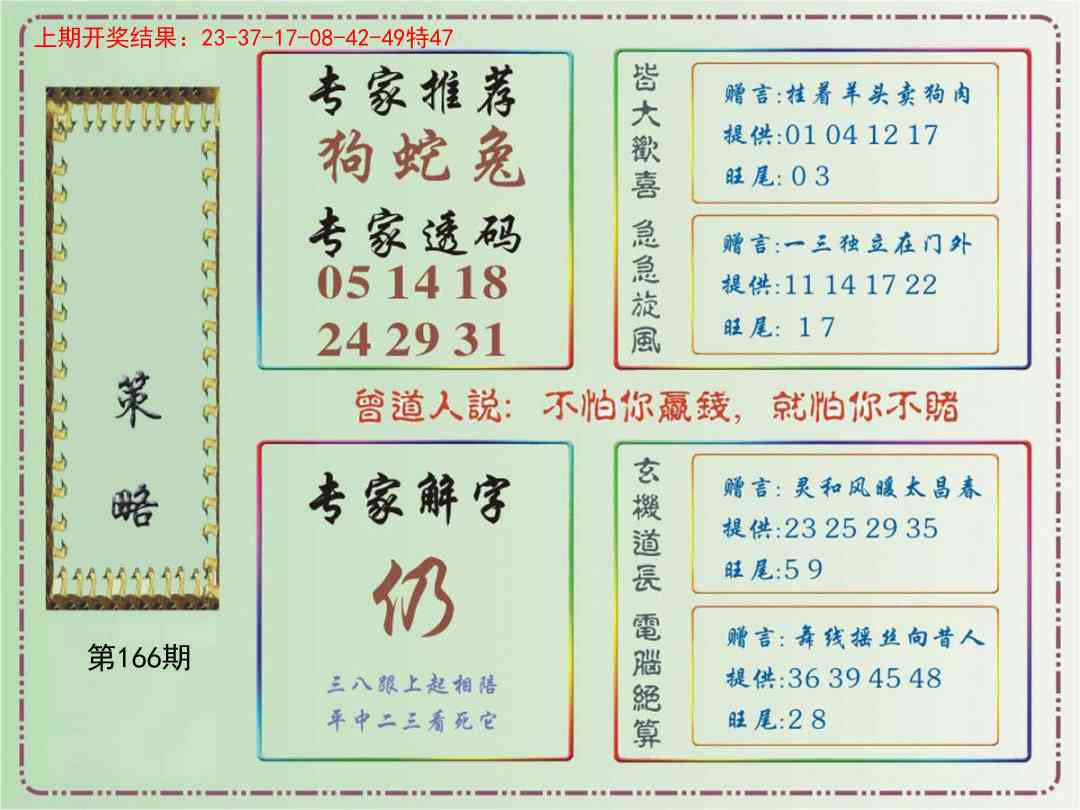 上期开奖结果：23-37-17-08-42-49特47
策略
第166期
专家推荐
狗蛇兔
专家透码
05 14 18
24 29 31
皆大歡喜
赠言:挂着羊头卖狗肉
提供:01 04 12 17
旺尾: 0 3
急急旋風
赠言:一三独立在门外
提供:11 14 17 22
旺尾: 1 7
曾道人説: 不怕你贏錢, 就怕你不賭
专家解字
仍
三八跟上起相陪
年中二三看死它
玄機道長
赠言: 灵和风暖太昌春
提供:23 25 29 35
旺尾:5 9
電腦絕算
赠言: 舞线摇丝向昔人
提供:36 39 45 48
旺尾:2 8